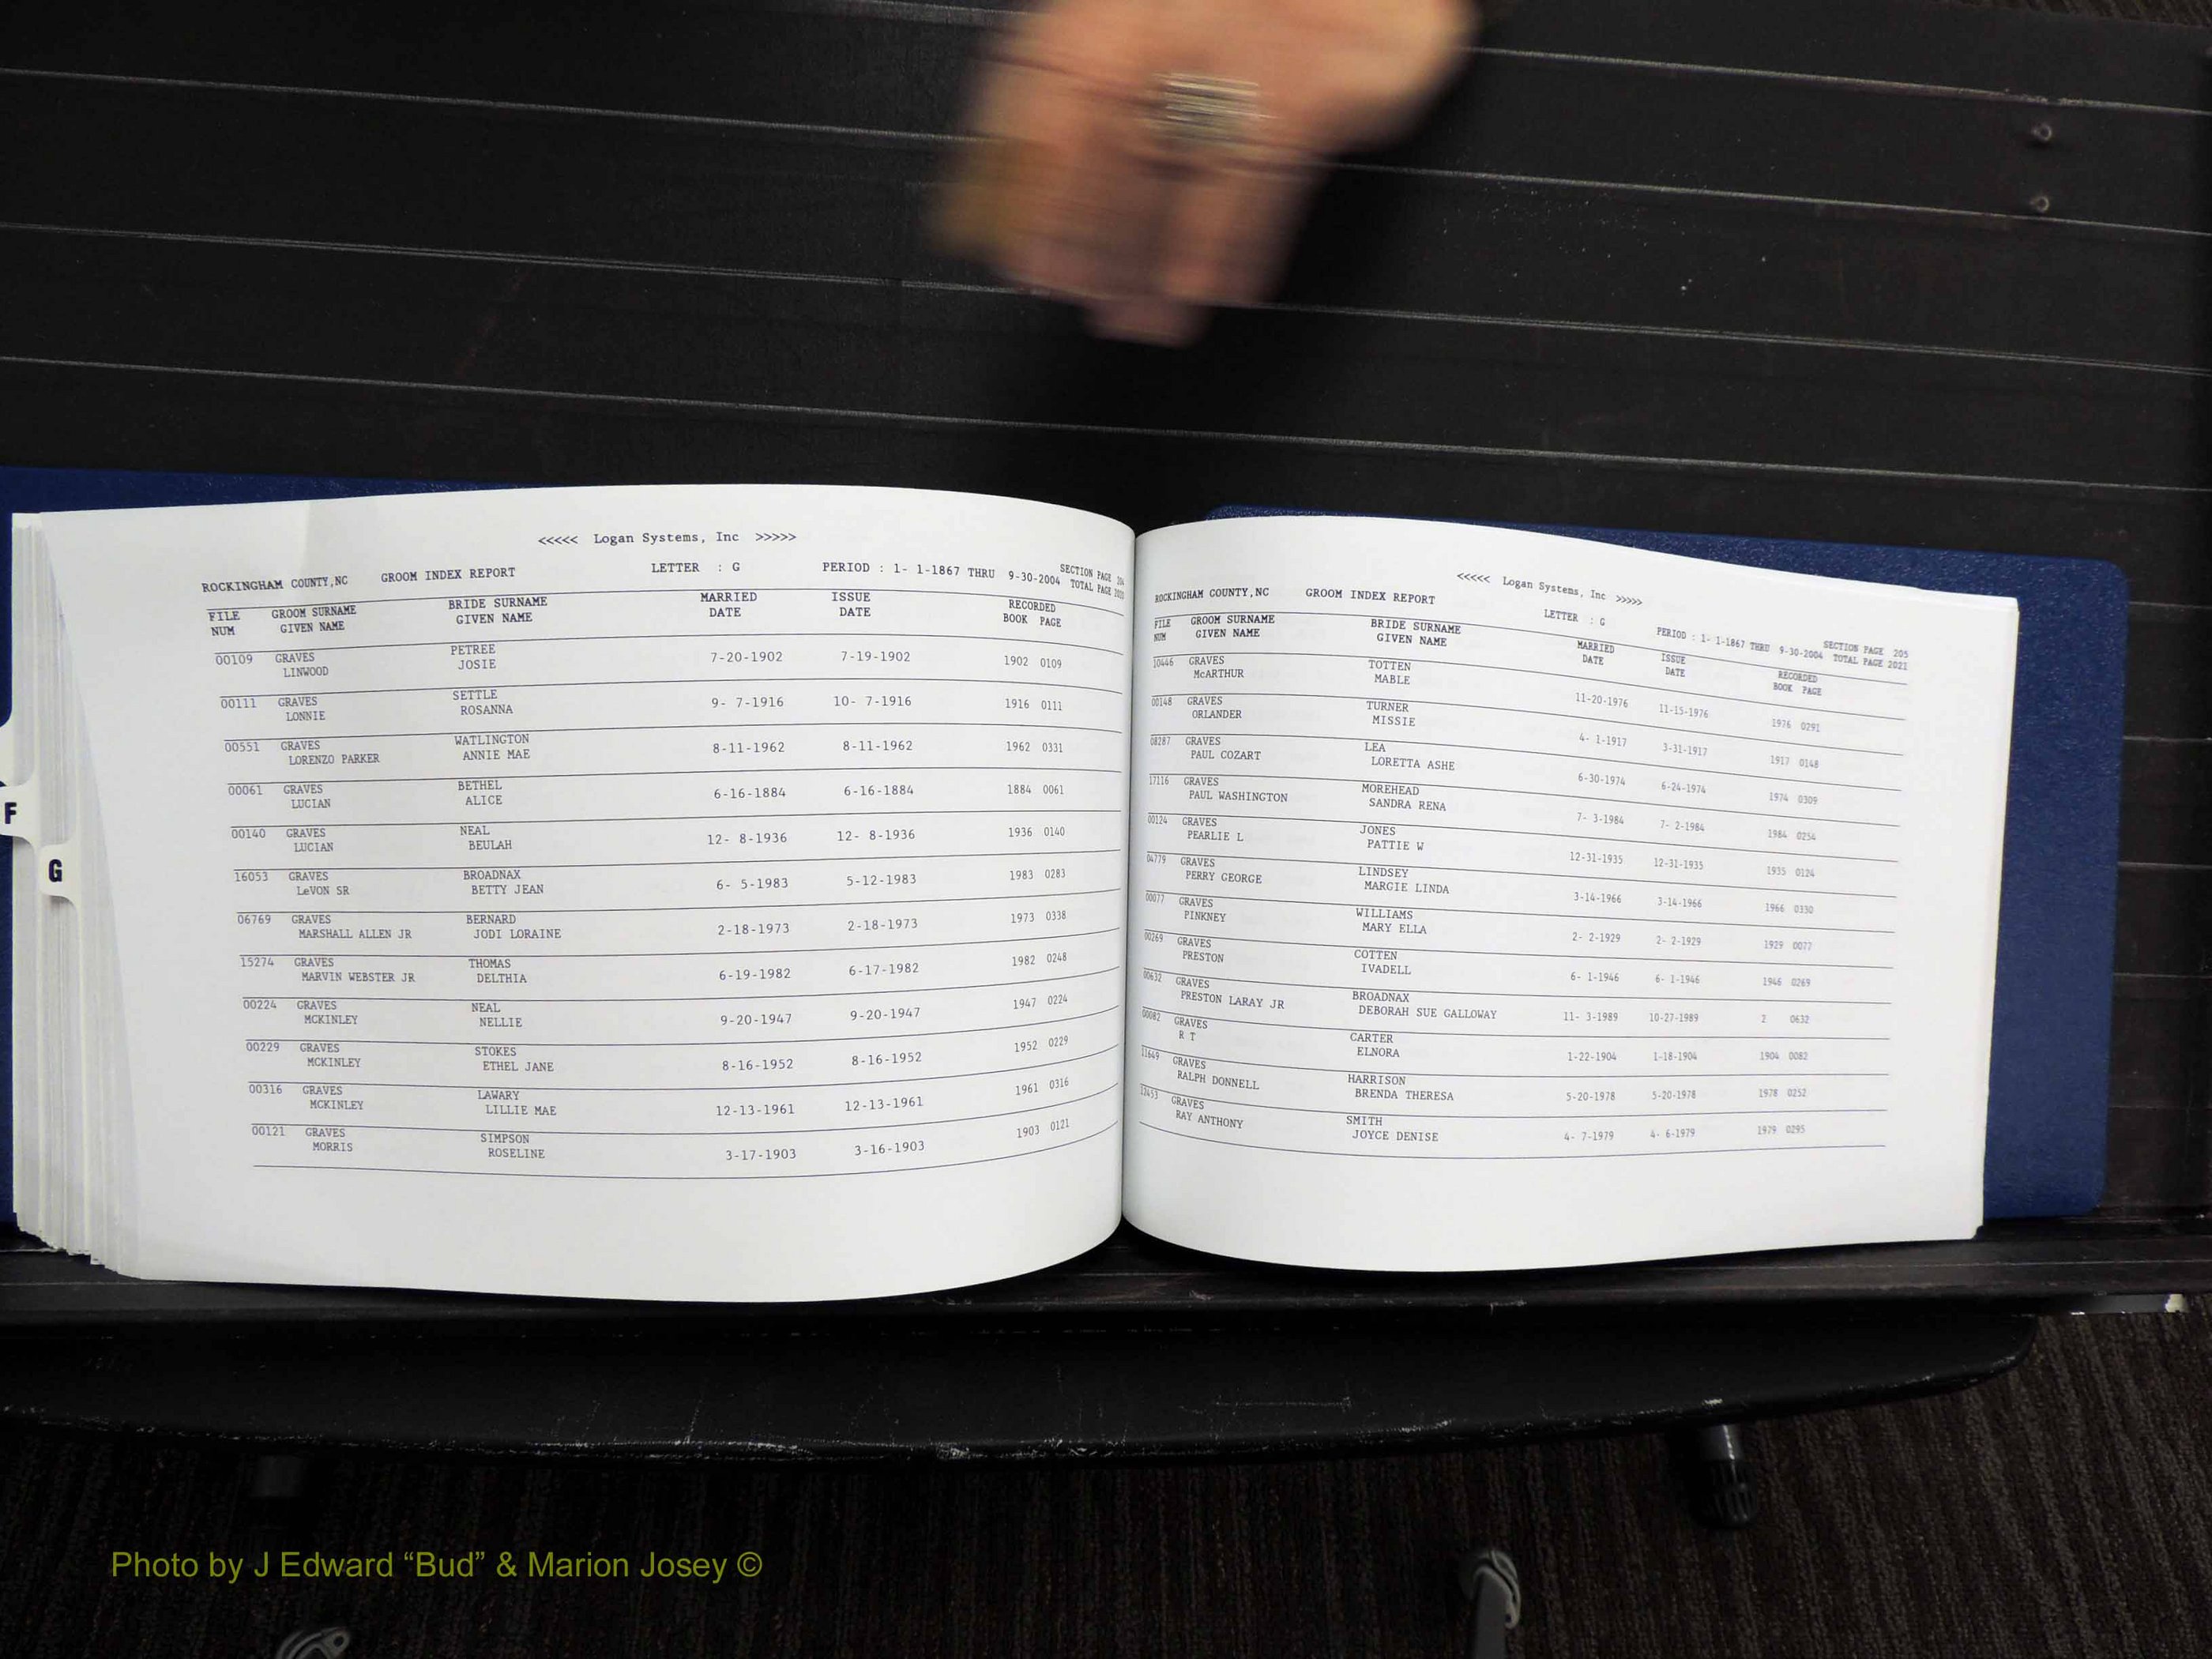 <<<<< Logan Systems, Inc >>>>>
ROCKINGHAM COUNTY,NC GROOM INDEX REPORT LETTER : G PERIOD : 1- 1-1867 THRU 9-30-2004 SECTION PAGE 204
TOTAL PAGE 2021
FILE GROOM SURNAME BRIDE SURNAME MARRIED ISSUE RECORDED
NUM GIVEN NAME GIVEN NAME DATE DATE BOOK PAGE
00109 GRAVES PETREE 7-20-1902 7-19-1902 1902 0109
LINWOOD JOSIE
00111 GRAVES SETTLE 9- 7-1916 10- 7-1916 1916 0111
LONNIE ROSANNA
00551 GRAVES WATLINGTON 8-11-1962 8-11-1962 1962 0331
LORENZO PARKER ANNIE MAE
00061 GRAVES BETHEL 6-16-1884 6-16-1884 1884 0061
LUCIAN ALICE
00140 GRAVES NEAL 12- 8-1936 12- 8-1936 1936 0140
LUCIAN BEULAH
16053 GRAVES BROADNAX 6- 5-1983 5-12-1983 1983 0283
LeVON SR BETTY JEAN
06769 GRAVES BERNARD 2-18-1973 2-18-1973 1973 0338
MARSHALL ALLEN JR JODI LORAINE
15274 GRAVES THOMAS 6-19-1982 6-17-1982 1982 0248
MARVIN WEBSTER JR DELTHIA
00224 GRAVES NEAL 9-20-1947 9-20-1947 1947 0224
MCKINLEY NELLIE
00229 GRAVES STOKES 8-16-1952 8-16-1952 1952 0229
MCKINLEY ETHEL JANE
00316 GRAVES LAWARY 12-13-1961 12-13-1961 1961 0316
MCKINLEY LILLIE MAE
00121 GRAVES SIMPSON 3-17-1903 3-16-1903 1903 0121
MORRIS ROSELINE
F
G
<<<<< Logan Systems, Inc >>>>>
ROCKINGHAM COUNTY,NC GROOM INDEX REPORT LETTER : G PERIOD : 1- 1-1867 THRU 9-30-2004 SECTION PAGE 205
TOTAL PAGE 2021
FILE GROOM SURNAME BRIDE SURNAME MARRIED ISSUE RECORDED
NUM GIVEN NAME GIVEN NAME DATE DATE BOOK PAGE
10446 GRAVES TOTTEN 11-20-1976 11-15-1976 1976 0291
McARTHUR MABLE
00148 GRAVES TURNER 4- 1-1917 3-31-1917 1917 0148
ORLANDER MISSIE
08287 GRAVES LEA 6-30-1974 6-24-1974 1974 0309
PAUL COZART LORETTA ASHE
17116 GRAVES MOREHEAD 7- 3-1984 7- 2-1984 1984 0254
PAUL WASHINGTON SANDRA RENA
00124 GRAVES JONES 12-31-1935 12-31-1935 1935 0124
PEARLIE L PATTIE W
04779 GRAVES LINDSEY 3-14-1966 3-14-1966 1966 0330
PERRY GEORGE MARGIE LINDA
00077 GRAVES WILLIAMS 2- 2-1929 2- 2-1929 1929 0077
PINKNEY MARY ELLA
00269 GRAVES COTTEN 6- 1-1946 6- 1-1946 1946 0269
PRESTON IVADELL
00632 GRAVES BROADNAX 11- 3-1989 10-27-1989 2 0632
PRESTON LARAY JR DEBORAH SUE GALLOWAY
00082 GRAVES CARTER 1-22-1904 1-18-1904 1904 0082
R T ELNORA
11649 GRAVES HARRISON 5-20-1978 5-20-1978 1978 0252
RALPH DONNELL BRENDA THERESA
12453 GRAVES SMITH 4- 7-1979 4- 6-1979 1979 0295
RAY ANTHONY JOYCE DENISE
Photo by J Edward “Bud” & Marion Josey ©